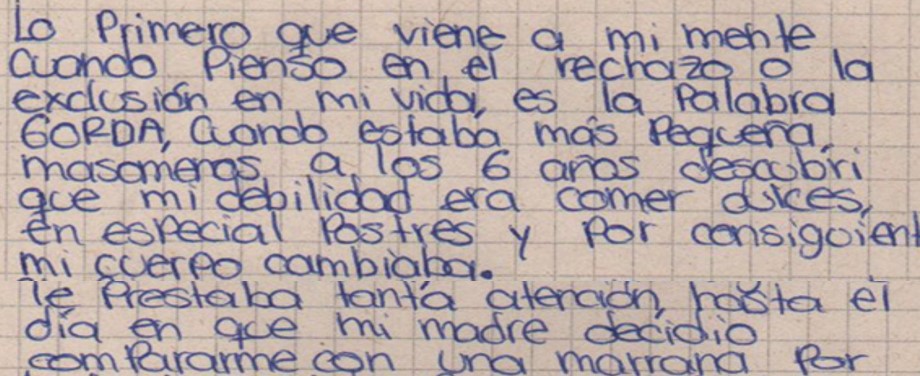 Lo Primero que viene a mi mente
Cuando Pienso en el rechazo o la
exclusión en mi vida, es la Palabra
GORDA, Cuando estaba más Pequeña,
masomenos a los 6 años descubri
que mi debilidad era comer dulces,
en especial Postres y Por consiguient
mi cuerpo cambiaba.
le Prestaba tanta atención, hasta el
día en que mi madre decidio
compararme con una marrana Por